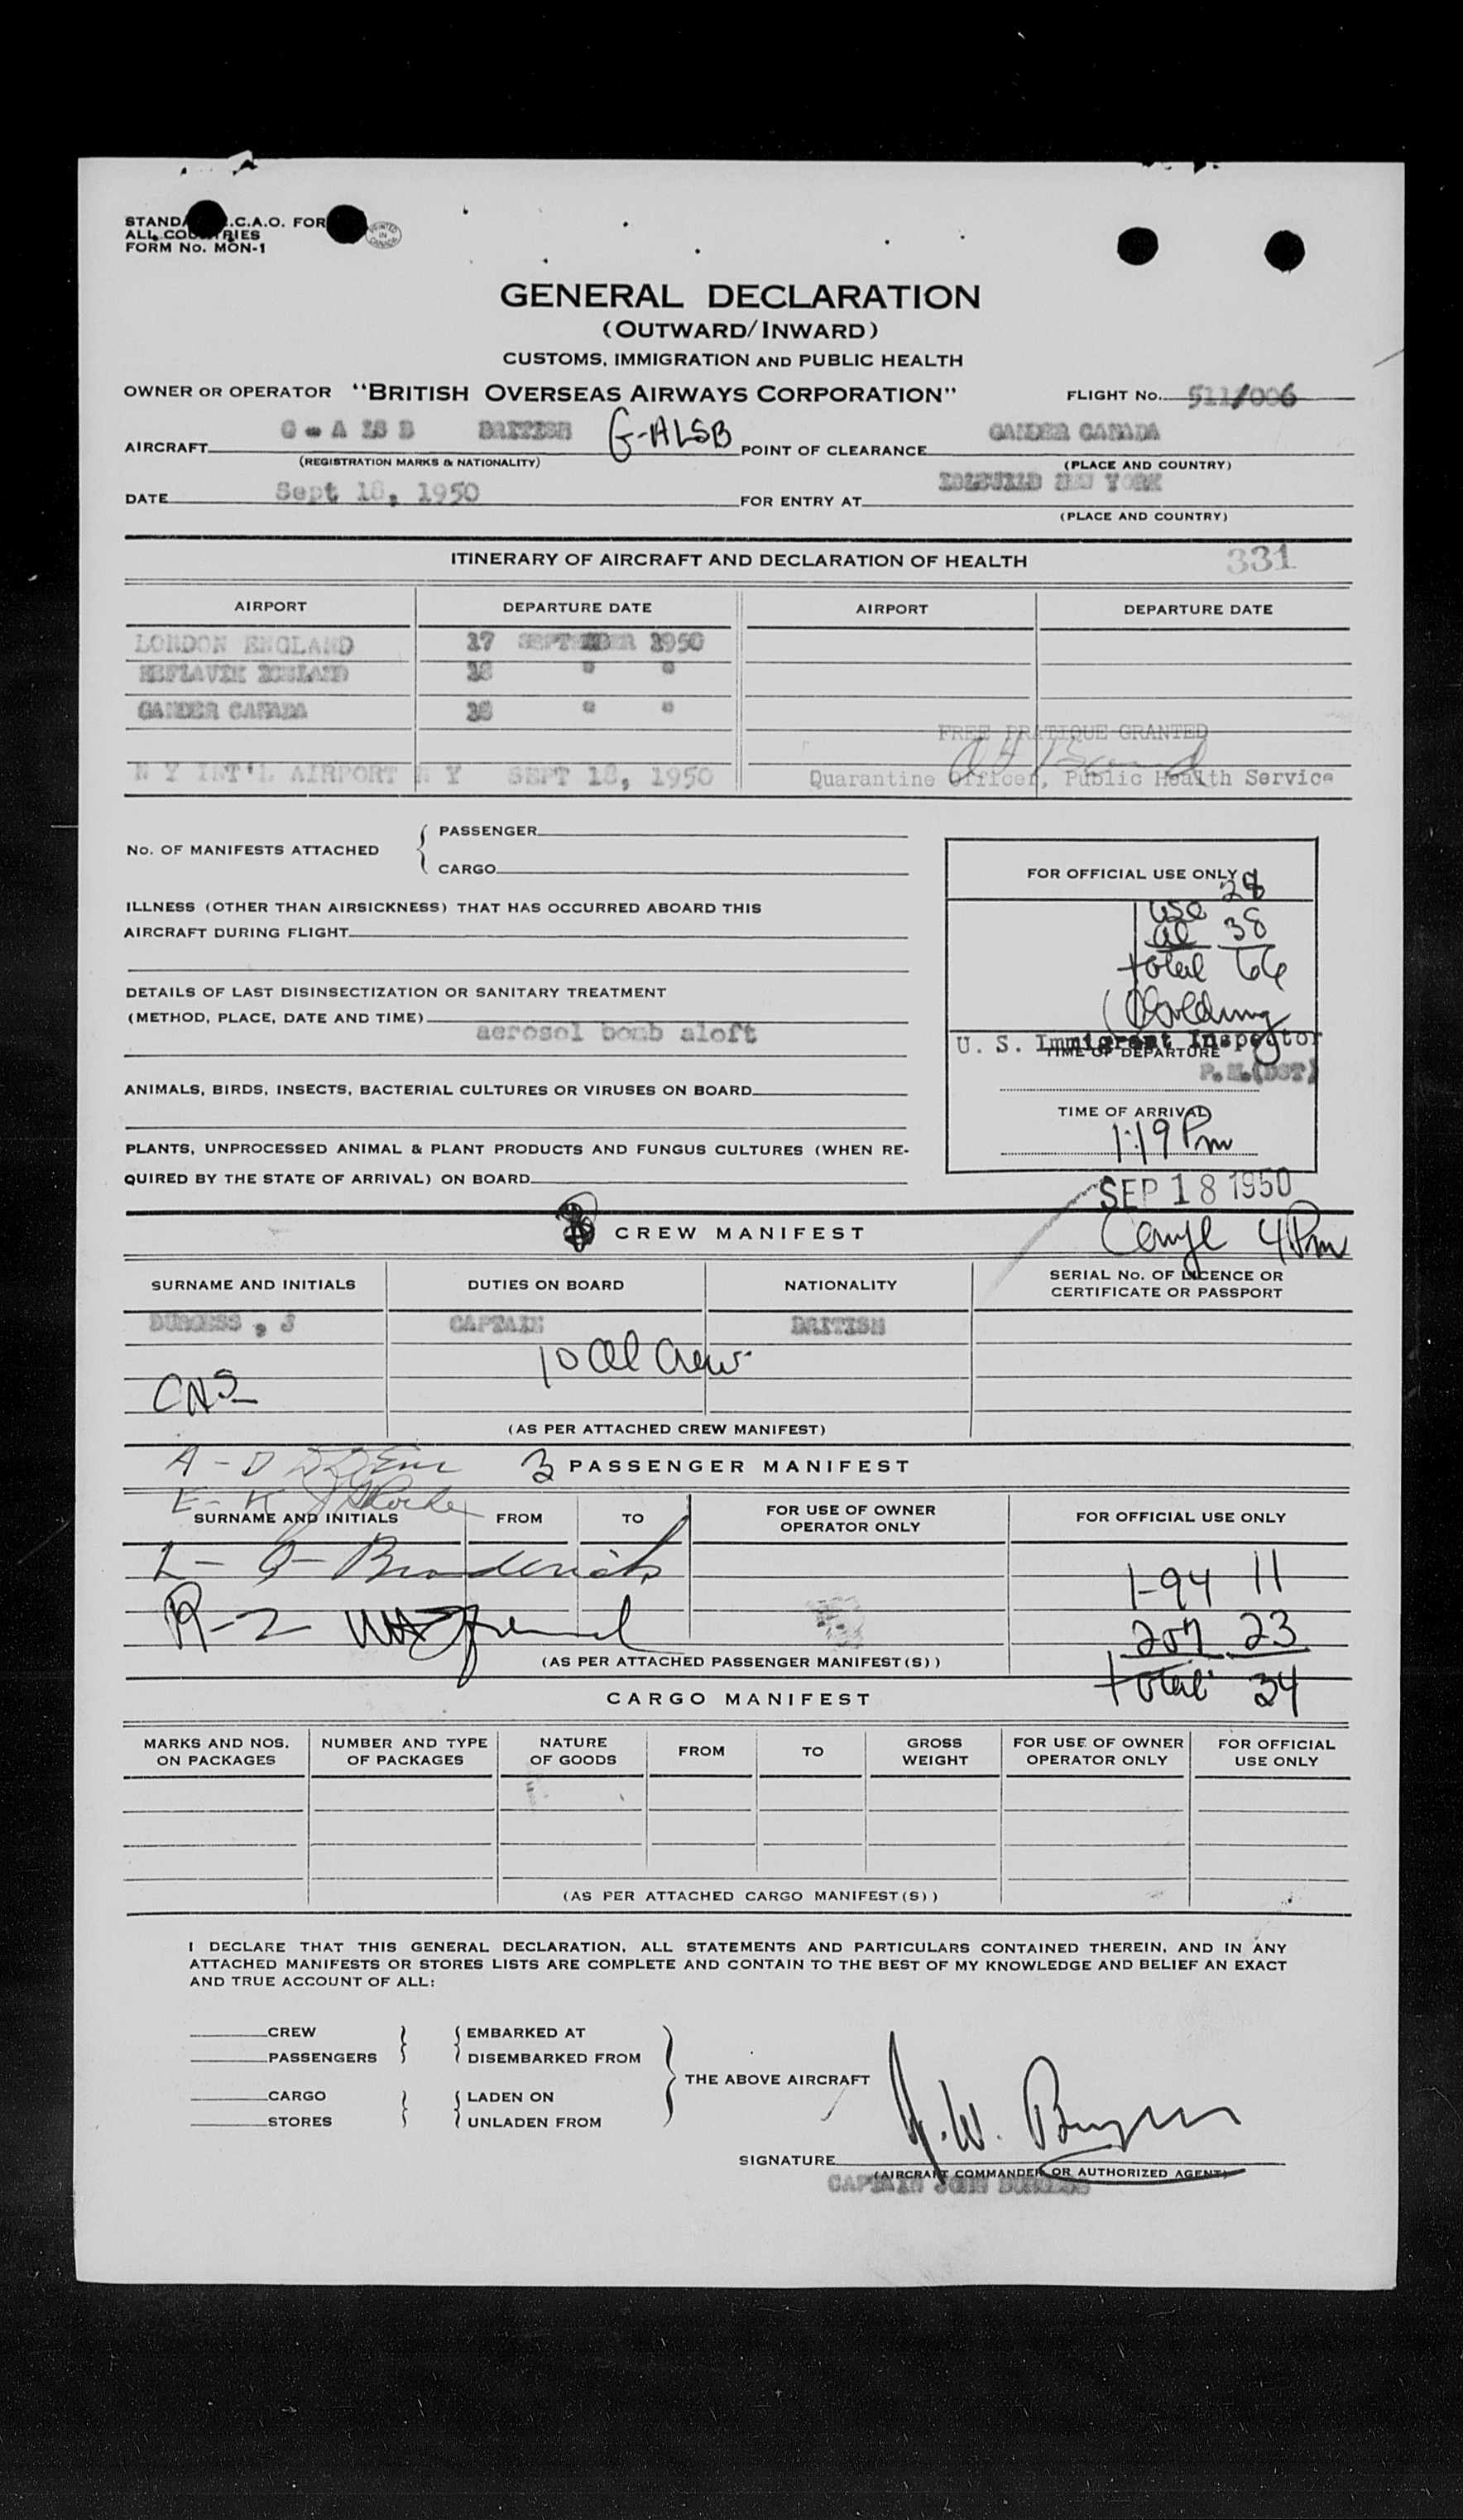 STAND .C.A.O. FOR
ALL COUNTRIES
FORM No. MON-1
PRINTED IN CANADA
GENERAL DECLARATION
(OUTWARD/INWARD)
CUSTOMS, IMMIGRATION AND PUBLIC HEALTH
OWNER OR OPERATOR "BRITISH OVERSEAS AIRWAYS CORPORATION" FLIGHT No. 511/006
AIRCRAFT G-ALSB BRITISH G-ALSB POINT OF CLEARANCE GANDER CANADA
(REGISTRATION MARKS & NATIONALITY) (PLACE AND COUNTRY)
DATE Sept 18, 1950 FOR ENTRY AT IDLEWILD NEW YORK
(PLACE AND COUNTRY)
ITINERARY OF AIRCRAFT AND DECLARATION OF HEALTH 331
AIRPORT DEPARTURE DATE AIRPORT DEPARTURE DATE
LONDON ENGLAND 17 SEPTEMBER 1950
KEFLAVIK ICELAND 18 " "
GANDER CANADA 18 " "
FREE PRATIQUE GRANTED
N Y INT'L AIRPORT N Y SEPT 18, 1950 Quarantine Officer, Public Health Service
No. OF MANIFESTS ATTACHED { PASSENGER
CARGO
FOR OFFICIAL USE ONLY
USC 28
al 38
total 66
Golding
U. S. Immigrant Inspector
TIME OF DEPARTURE
P.M.(DST)
TIME OF ARRIVAL
1:19 Pm
SEP 18 1950
4 Pm
ILLNESS (OTHER THAN AIRSICKNESS) THAT HAS OCCURRED ABOARD THIS
AIRCRAFT DURING FLIGHT
DETAILS OF LAST DISINSECTIZATION OR SANITARY TREATMENT
(METHOD, PLACE, DATE AND TIME)
aerosol bomb aloft
ANIMALS, BIRDS, INSECTS, BACTERIAL CULTURES OR VIRUSES ON BOARD
PLANTS, UNPROCESSED ANIMAL & PLANT PRODUCTS AND FUNGUS CULTURES (WHEN RE-
QUIRED BY THE STATE OF ARRIVAL) ON BOARD
CREW MANIFEST
SURNAME AND INITIALS DUTIES ON BOARD NATIONALITY SERIAL No. OF LICENCE OR
CERTIFICATE OR PASSPORT
BURGESS, J CAPTAIN BRITISH
10 al Crew
CNS
(AS PER ATTACHED CREW MANIFEST)
A - D
3 PASSENGER MANIFEST
E - K
SURNAME AND INITIALS FROM TO FOR USE OF OWNER
OPERATOR ONLY FOR OFFICIAL USE ONLY
L - Q - Broderick
I-94 11
R-Z
257 23
(AS PER ATTACHED PASSENGER MANIFEST(S))
total 34
CARGO MANIFEST
MARKS AND NOS.
ON PACKAGES NUMBER AND TYPE
OF PACKAGES NATURE
OF GOODS FROM TO GROSS
WEIGHT FOR USE OF OWNER
OPERATOR ONLY FOR OFFICIAL
USE ONLY
(AS PER ATTACHED CARGO MANIFEST(S))
I DECLARE THAT THIS GENERAL DECLARATION, ALL STATEMENTS AND PARTICULARS CONTAINED THEREIN, AND IN ANY
ATTACHED MANIFESTS OR STORES LISTS ARE COMPLETE AND CONTAIN TO THE BEST OF MY KNOWLEDGE AND BELIEF AN EXACT
AND TRUE ACCOUNT OF ALL:
CREW EMBARKED AT
PASSENGERS DISEMBARKED FROM
THE ABOVE AIRCRAFT
CARGO LADEN ON
STORES UNLADEN FROM
J. W. Burgess
SIGNATURE
(AIRCRAFT COMMANDER OR AUTHORIZED AGENT)
CAPTAIN JOHN BURGESS